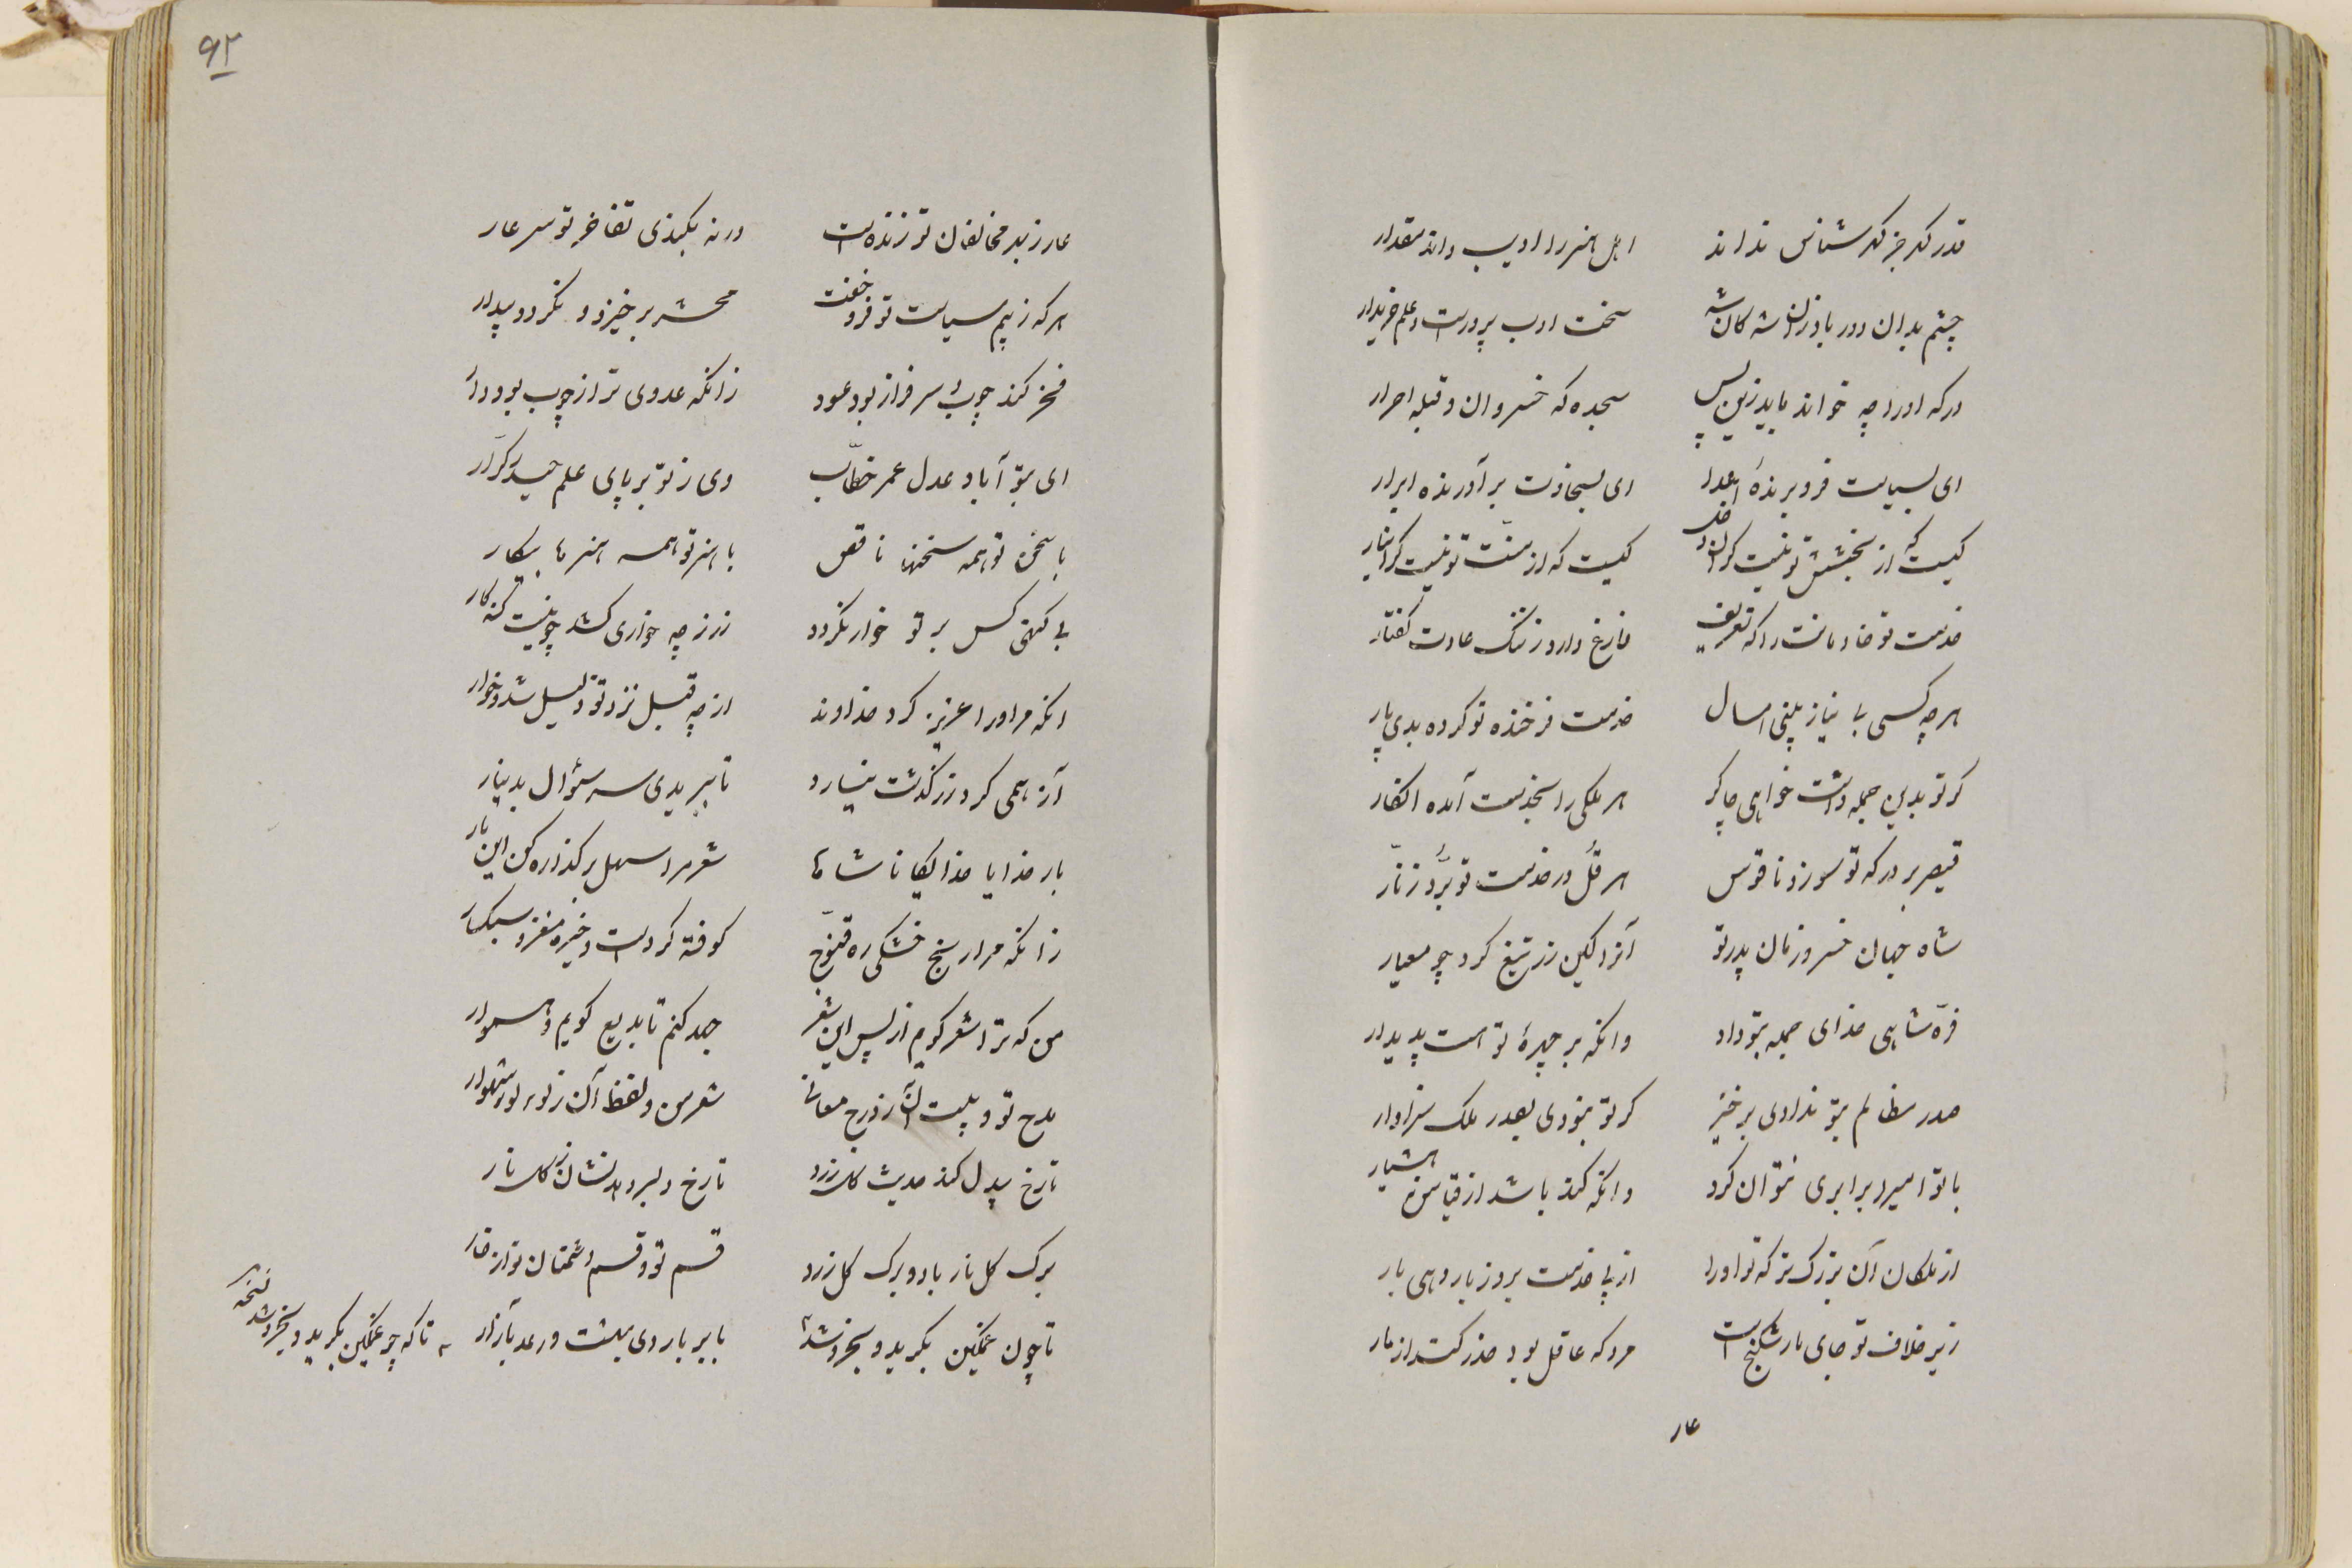 قدر گهر جز گهر شناس نداند
اهل هنر را ادیب داند مقدار
چشم بدان دور باد ازان شه کان شه
سخت ادب پرورست و علم خریدار
درگه او را چه خواند باید زین پس
سجده گه خسروان و قبله احرار
ای بسیاست فرو برندهٔ اعدا
ای بسخاوت برآورنده ابرار
کیست که از بخششِ تو نیست
کیست که از منّت تو نیست گرانبار
خدمت تو خادمانت را که تعریف
فارغ دارد ز ننگ عادت گفتار
هر چه کسی بی نیاز بینی امسال
خدمت فرخنده تو کرده بدی پار
گر تو بدین جمله داشت خواهی چاکر
هر ملکی را بخدمت آمده انگار
قیصر بر درگه تو سوزد ناقوس
هرقُل در خدمت تو بُرّد زنّار
شاه جهان خسرو زمان پدر تو
آنرا کین زر تیغ کرد چو معیار
فرّه شاهی خدای جمله بتو داد
وانگه بر چهرهٔ تو هست پدیدار
صدر مظالم بتو ندادی برخیز
گر تو نبودی بصدر ملک سزاوار
با تو امیرا برابری نتوان کرد
وانکه کند باشد از قیاس نه هشیار
از ملکان آن بزرگ‌تر که تو او را
از پی خدمت بروز بار دهی بار
زیر خلاف تو جای مار شکنج است
مرد که عاقل بود حذر کند از مار
عار
۹۲
عار ز بهر مخالفان تو زنده‌ست
ورنه بکندی تفاخر تو سر عار
هر که ز بیم سیاست تو فرو خفت
محشر برخیزد و نگردد بیدار
فخر کند چوب بی سر فراز بود عود
زانکه عدوی ترا ز چوب بود دار
ای بتو آباد عدل عمر خطّاب
وی ز تو بر پای علم حیدر کرّار
با سخن تو همه سخنها ناقص
با هنر تو همه هنرها بیکار
بی گنهی کس بر تو خوار نگردد
زر ز چه خواری کشد چو نیست گنه کار
آنکه مر او را عزیز کرد خداوند
از چه قبل نزد تو ذلیل شد و خوار
آز همی کرد زر گذشت نیارد
تا ببریدی سر سئوال بدینار
بار خدایا خدایگانا شاها
شعر مرا سهل بر گذاره کن این بار
زانکه مرا رنج خشکی ره قنّوج
کوفته کردست و خیره مغز و سبکسار
من که ترا شعر گویم از پس این شعر
جهد کنم تا بدیع گویم و هموار
مدح تو و بیت آن ز درج معانی
شعر من و لفظ آن ز لؤلؤ شهوار
تا رخ بیدل کند حدیث گل زرد
تا رخ دلبر دهد نشان ز گل نار
برگ گل نار باد و برگ گل زرد
قسم تو و قسم دشمنان تو از خار
تا چون غمگین بگرید و بخروشد
با بر باردی بهشت و رعد بآزار
تا که چو غمگین بگرید و بخروشد نسخه